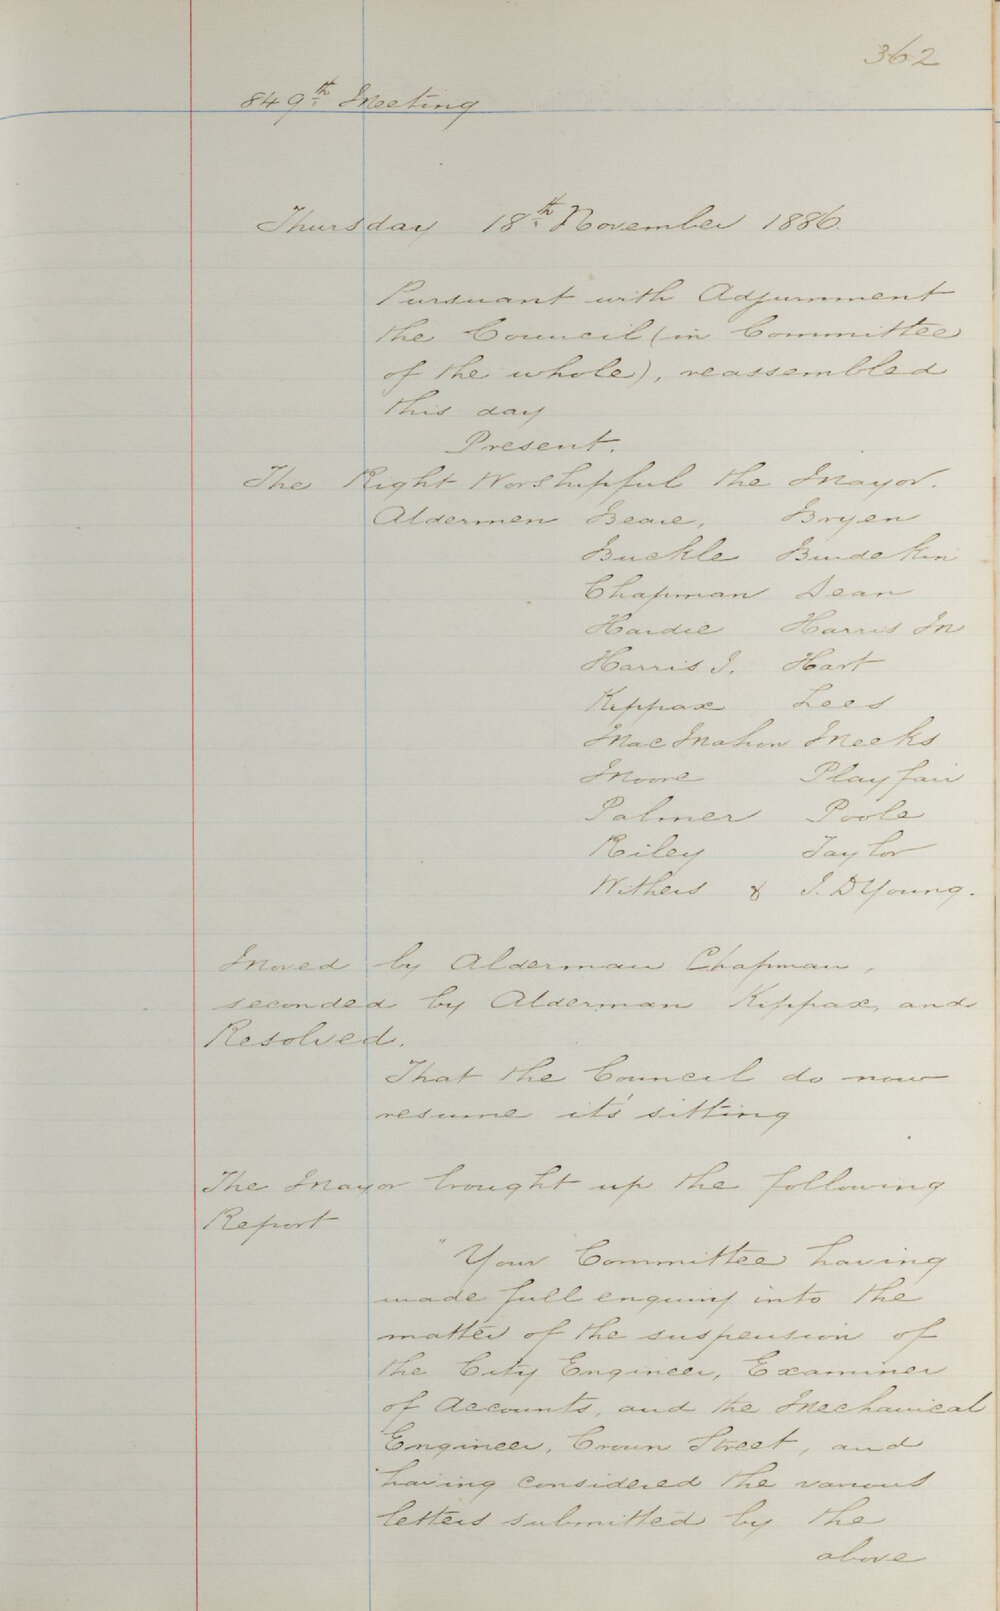 362
849th Meeting
Thursday 18th November 1886.
Pursuant with Adjurnment
the Council (in Committee
of the whole), reassembled
this day
Present.
The Right Worshipful the Mayor.
Aldermen Beare, Bryen
Buckle Burdekin
Chapman Dean
Hardie Harris M
Harris J. Hart
Kippax Lees
MacMahon Meeks
Moore Playfair
Palmer Poole
Riley Taylor
Withers & J. D Young.
Moved by Alderman Chapman,
seconded by Alderman Kippax, and
Resolved.
That the Council do now
resume it's sitting
The Mayor brought up the following
Report
"Your Committee having
made full enquiry into the
matter of the suspension of
the City Engineer, Examiner
of Accounts, and the Mechanical
Engineer, Crown Street, and
having considered the various
letters submitted by the
above